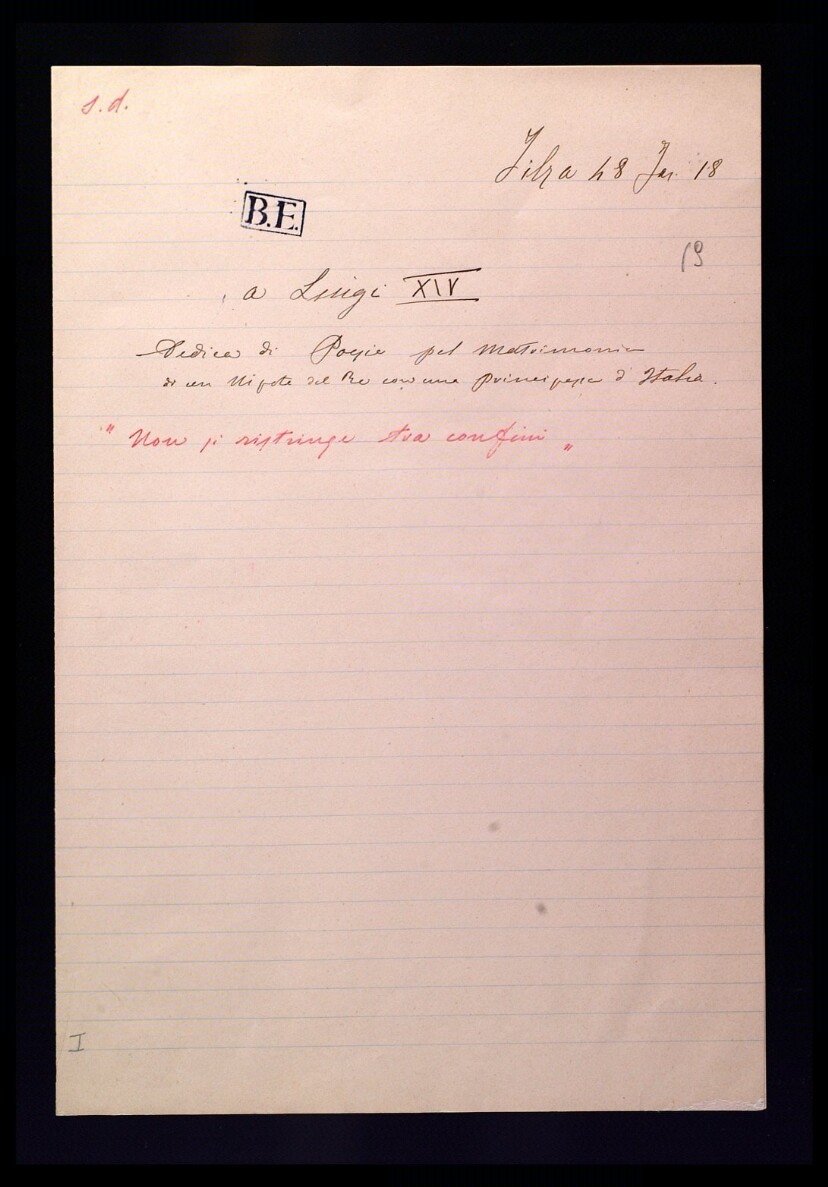 s.d.
Filza 48 Fas. 18
B.E.
19
a Luigi XIV
Dedica di Poesie pel Matrimonio
di un Nipote del Re con una principessa d'Italia.
"Non si ristringe tra confini"
I